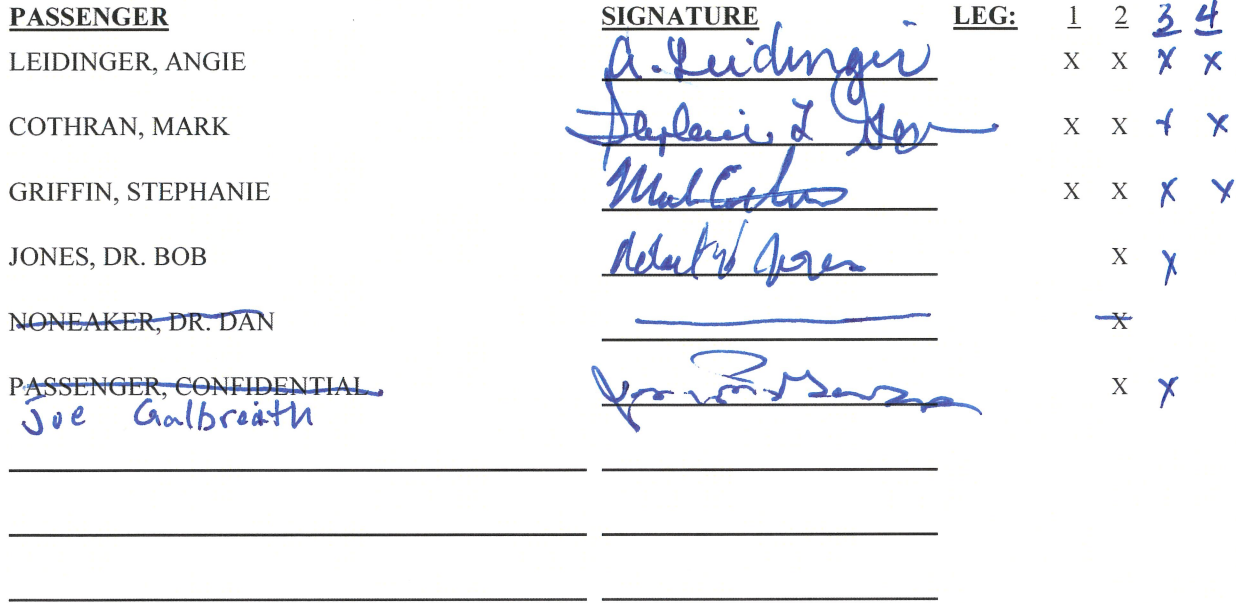 PASSENGER SIGNATURE LEG: 1 2 3 4
LEIDINGER, ANGIE A. Leidinger X X X X
COTHRAN, MARK Stephanie L X X X X
GRIFFIN, STEPHANIE Mark Cothran X X X X
JONES, DR. BOB Robert W Jones X X
NONEAKER, DR. DAN X
PASSENGER, CONFIDENTIAL X X
Joe Galbreath